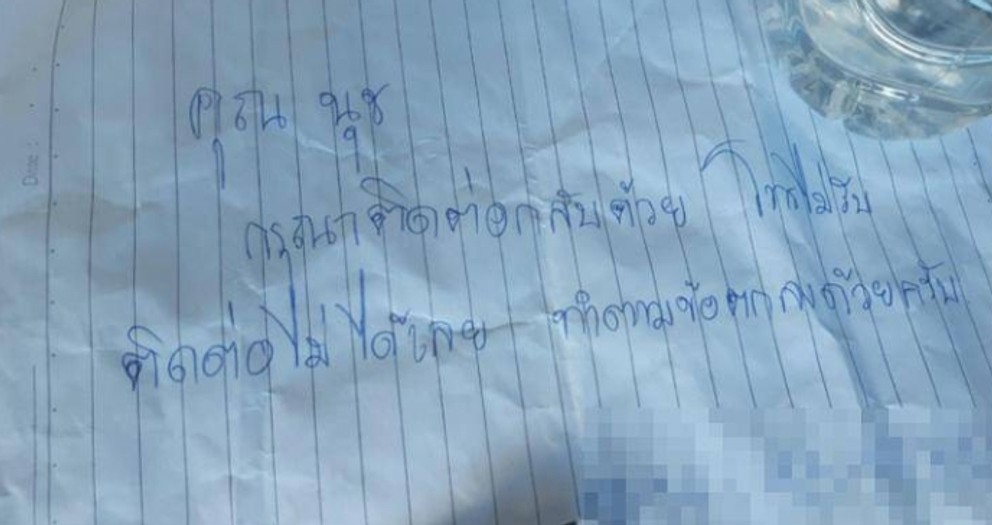 คุณ นุช
กรุณาติดต่อกลับด้วย โทรไม่รับ
ติดต่อไม่ได้เลย ทำตามข้อตกลงด้วยครับ
Date :